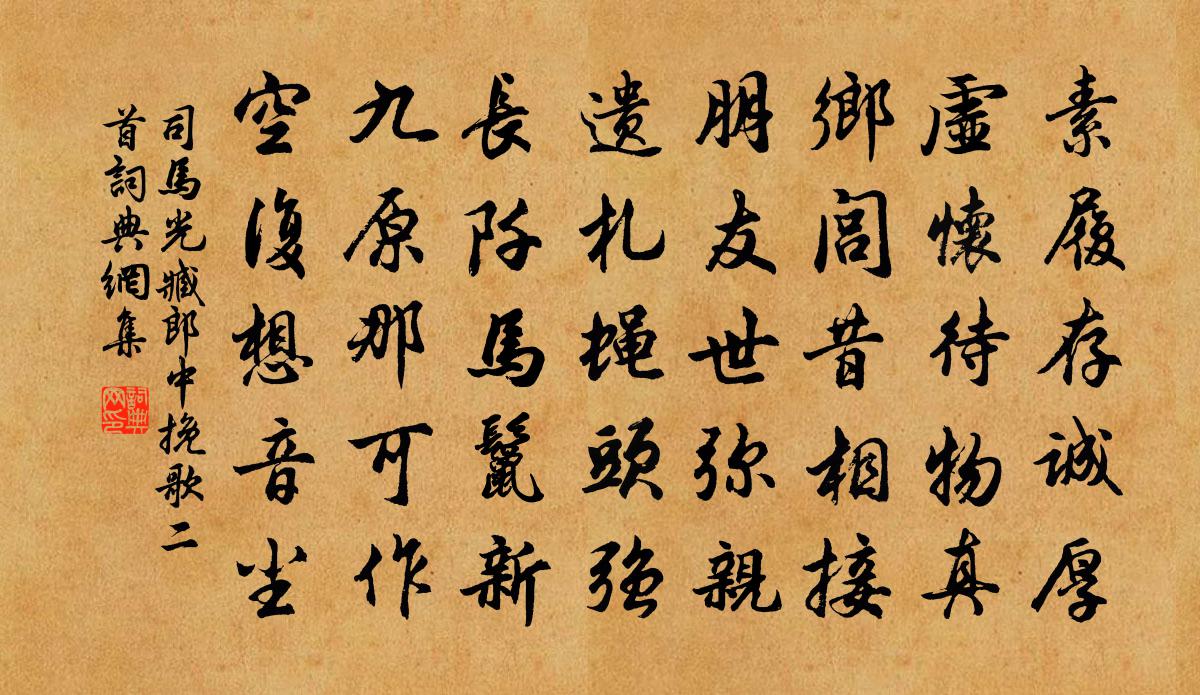 素履存诚厚
虚懷待物真
鄉閭昔相接
朋友世弥親
遗札蝇頭强
長阡馬鬣新
九原那可作
空復想音尘
司馬光臧郎中挽歌二
首詞典網集
詞典
网印